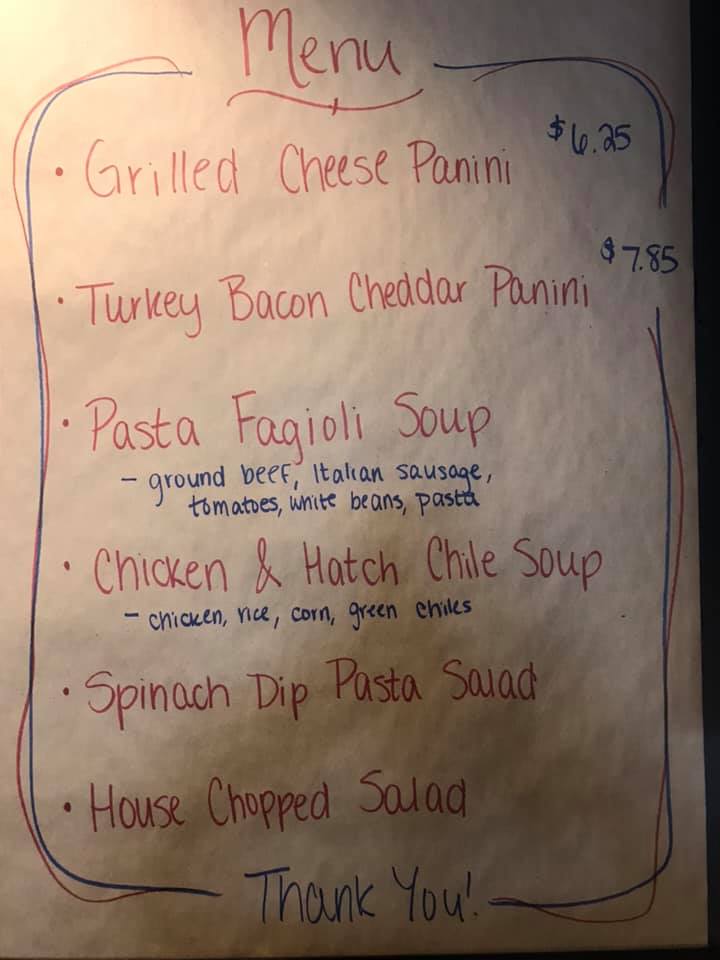 Menu
• Grilled Cheese Panini $6.25
• Turkey Bacon Cheddar Panini $7.85
• Pasta Fagioli Soup
- ground beef, Italian sausage,
tomatoes, white beans, pasta
• Chicken & Hatch Chile Soup
- chicken, rice, corn, green chiles
• Spinach Dip Pasta Salad
• House Chopped Salad
Thank You!